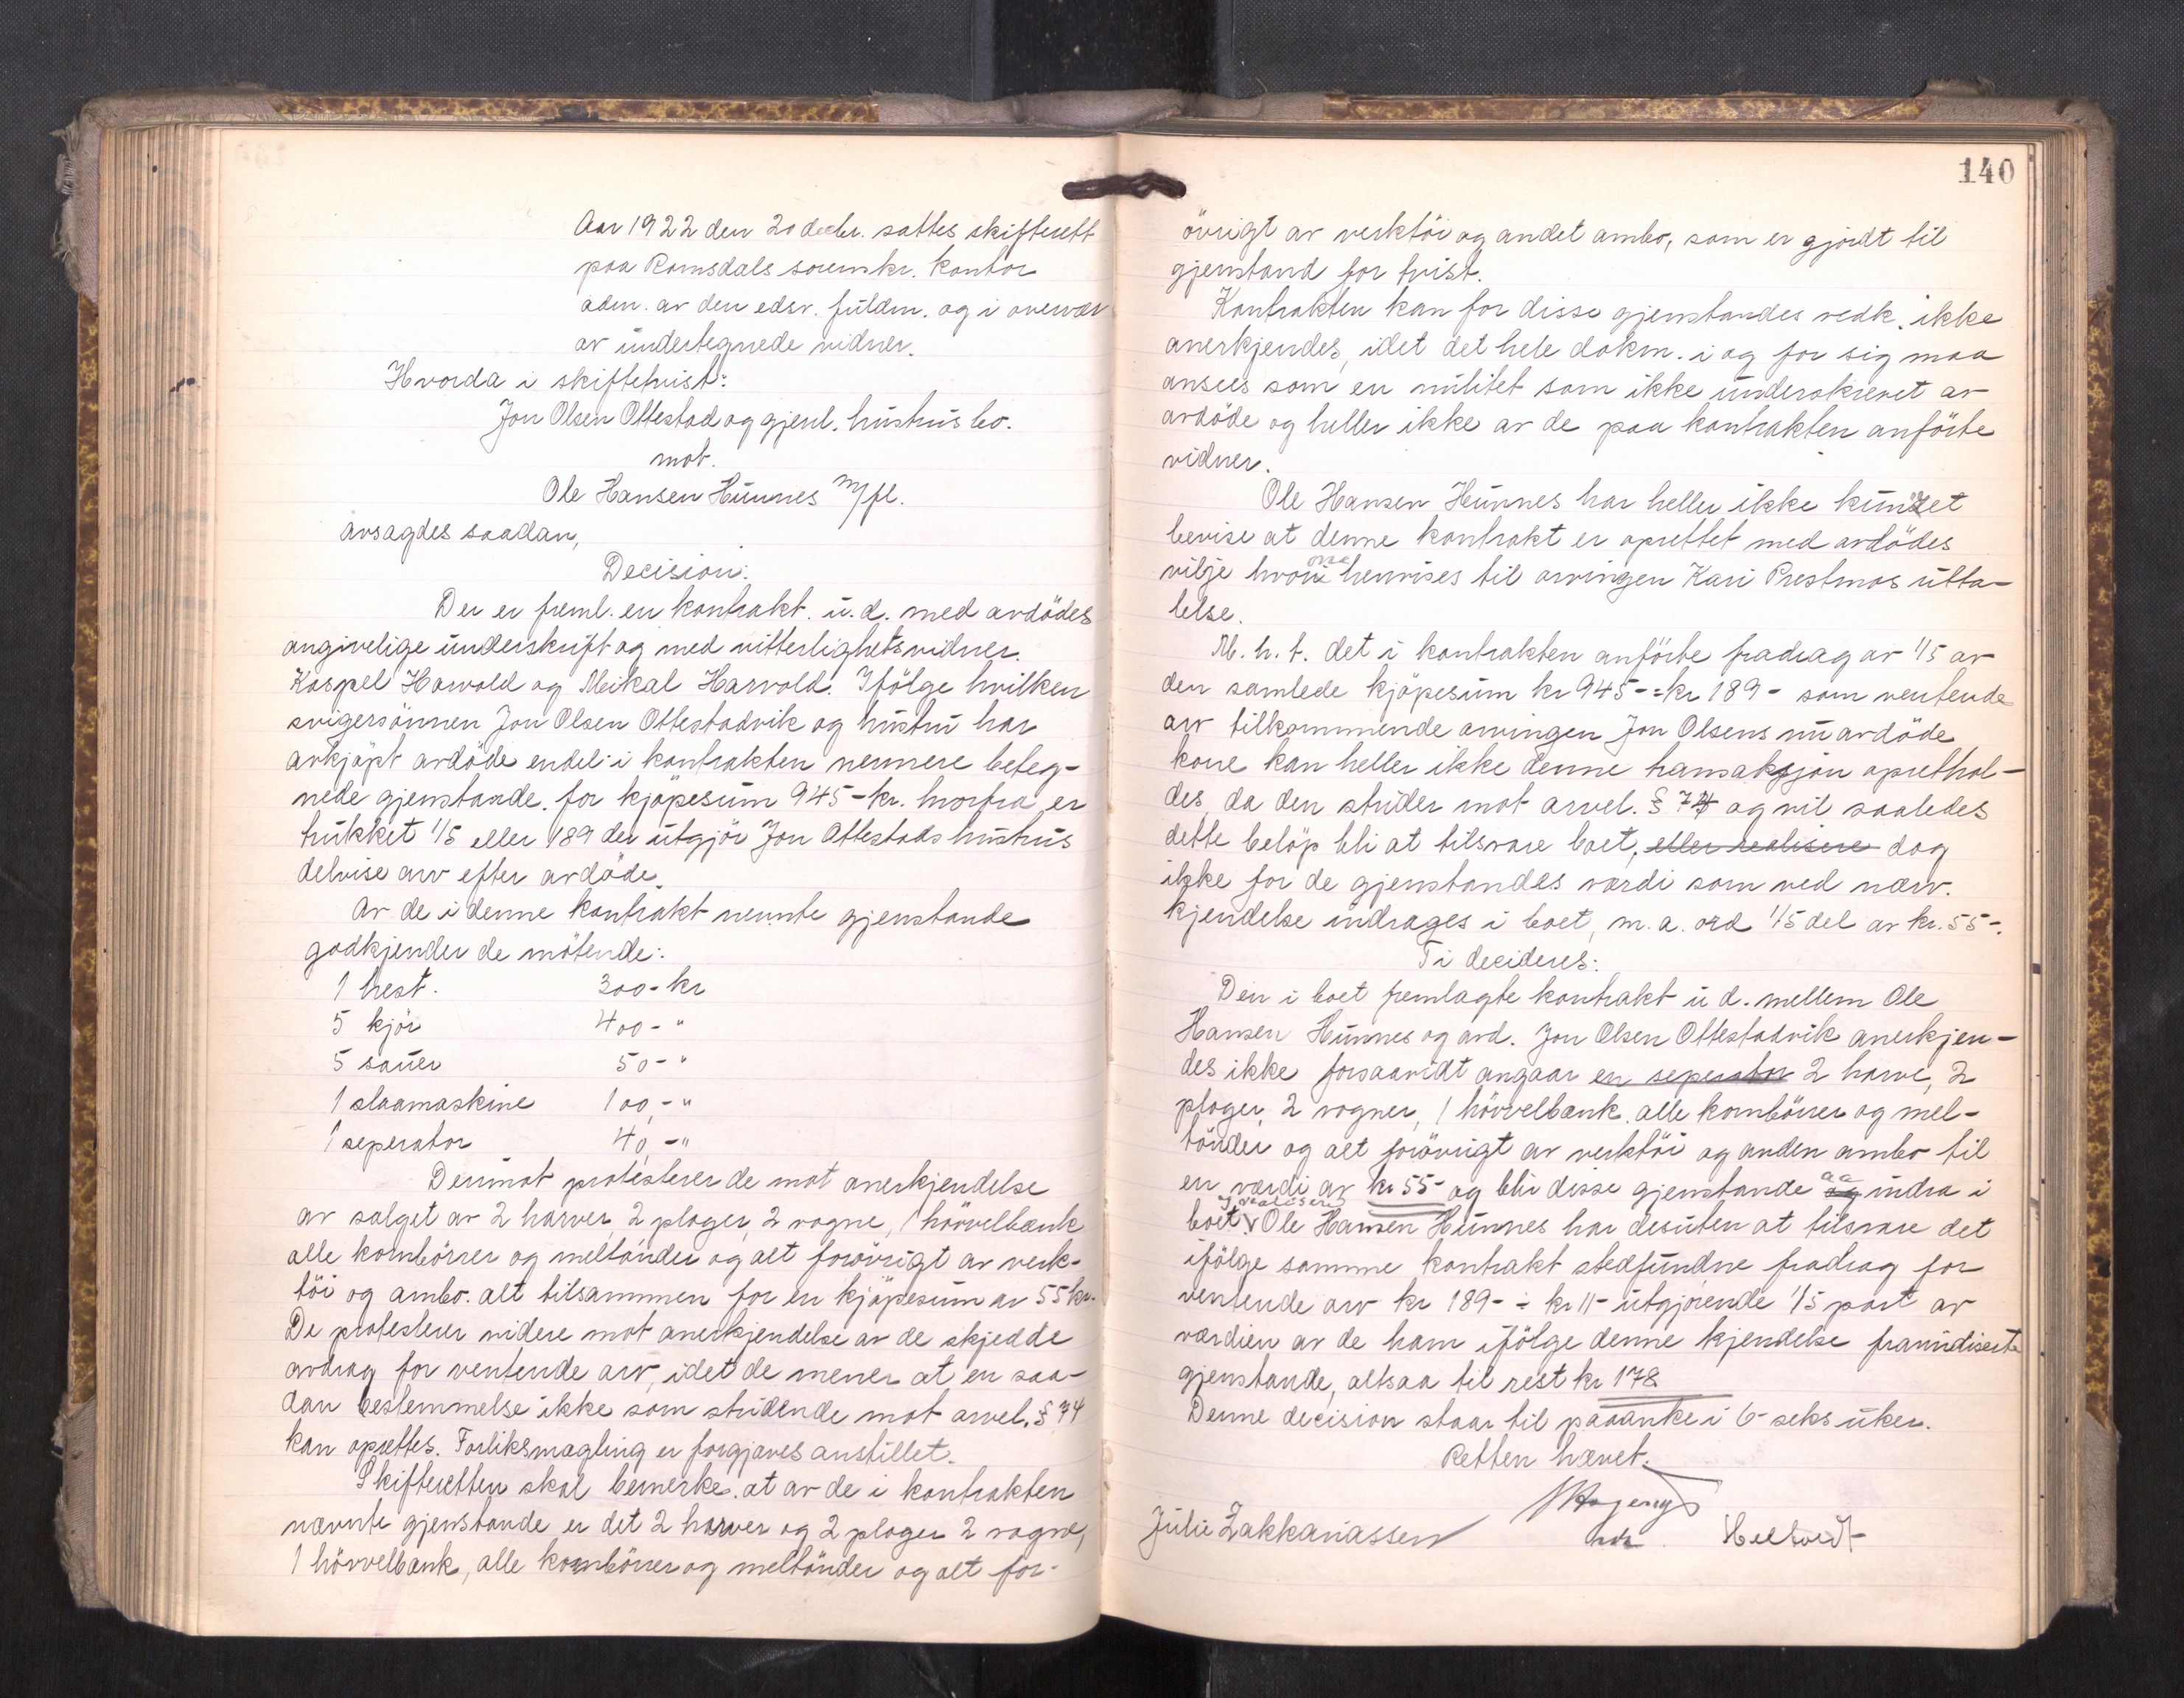 Aar 1922 den 20 decbr. sattes skifterett
paa Romsdals sorenskr. kontor
adm. av den edsv. fuldm. og i overvær
av undertegnede vidner.
Hvorda i skiftetvist:
Jon Olsen Ottestad og gjenl. hustrus bo.
mot.
Ole Hansen Hunnes m/fl.
avsagdes saadan,
Decision:
Der er freml. en kontrakt. u.d. med avdödes
angivelige underskrift og med vitterlighetsvidner.
Kaspel Harvold og Meikal Harvold. Ifölge hvilken
svigersönnen Jon Olsen Ottestadvik og hustru har
avkjöpt avdöde endel i kontrakten nermere beteg-
nede gjenstande. for kjöpesum 945-kr. hvorfra er
trukket 1/5 eller 189 der utgjör Jon Ottestads hustrus
delvise arv efter avdöde.
Av de i denne kontrakt nevnte gjenstande
godkjender de mötende:
1 hest. 300- kr
5 kjör 400- "
5 sauer 50- "
1 slaamaskine 100,- "
1 seperator 40,- "
Derimot protesterer de mot anerkjendelse
av salget av 2 harver 2 ploger, 2 vogne, 1 hövvelbænk
alle kornbörrer og meltönder og alt forövrigt av verk-
töi og ambo. alt tilsammen for en kjöpesum av 55 kr.
De protesterer videre mot anerkjendelse av de skjedde
avdrag for ventende arv, idet de mener at en saa-
dan bestemmelse ikke som stridende mot arvel. § 74
kan oprettes. Forliksmægling er forgjæves anstillet.
Skifteretten skal bemerke. at av de i kontrakten
nævnte gjenstande er det 2 harver og 2 ploger 2 vogne,
1 hövvelbænk, alle kornbörrer og meltönder og alt for-
140
övrigt av verktöi og andet ambo, som er gjördt til
gjenstand for tvist.
Kontrakten kan for disse gjenstandes vedk. ikke
anerkjendes, idet det hele dokm. i og for sig maa
ansees som en nulitet som ikke underskrevet av
avdöde og heller ikke av de paa kontrakten anförte
vidner.
Ole Hansen Hunnes har heller ikke kunnet
bevise at denne kontrakt er oprettet med avdödes
vilje hvorom henvises til arvingen Kari Prestmos utta-
lelse.
M. h. t. det i kontrakten anförte fradrag av 1/5 av
den samlede kjöpesum kr 945- = kr 189- som ventende
arv tilkommende arvingen Jon Olsens nu avdöde
kone kan heller ikke denne transaksjon oprethol-
des, da den strider mot arvel. § 74 og vil saaledes
dette belöp bli at tilsvare boet, eller realisere dog
ikke for de gjenstandes værdi som ved nærv.
kjendelse indrages i boet, m. a. ord 1/5 del av kr. 55-.
Ti decideres:
Den i boet fremlagte kontrakt u d. mellem Ole
Hansen Hunnes og avd. Jon Olsen Ottestadvik anerkjen-
des ikke forsaavidt angaar en seperator 2 harve, 2
ploger, 2 vogner, 1 hövvelbænk. alle kornbörrer og mel-
tönder og alt forövrigt av verktöi og anden ambo til
en værdi av kr 55- og blir disse gjenstande aa indra i
boet. Ole Hansen Hunnes har desuten at tilsvare det
ifölge samme kontrakt stedfundne fradrag for
ventende arv kr 189- ÷ kr 11- utgjörende 1/5 part av
værdien av de ham ifölge denne kjendelse
gjenstande, altsaa til rest kr 178
Denne decision staar til paaanke i 6- seks uker.
Retten hævet.
Julie Zakkariassen